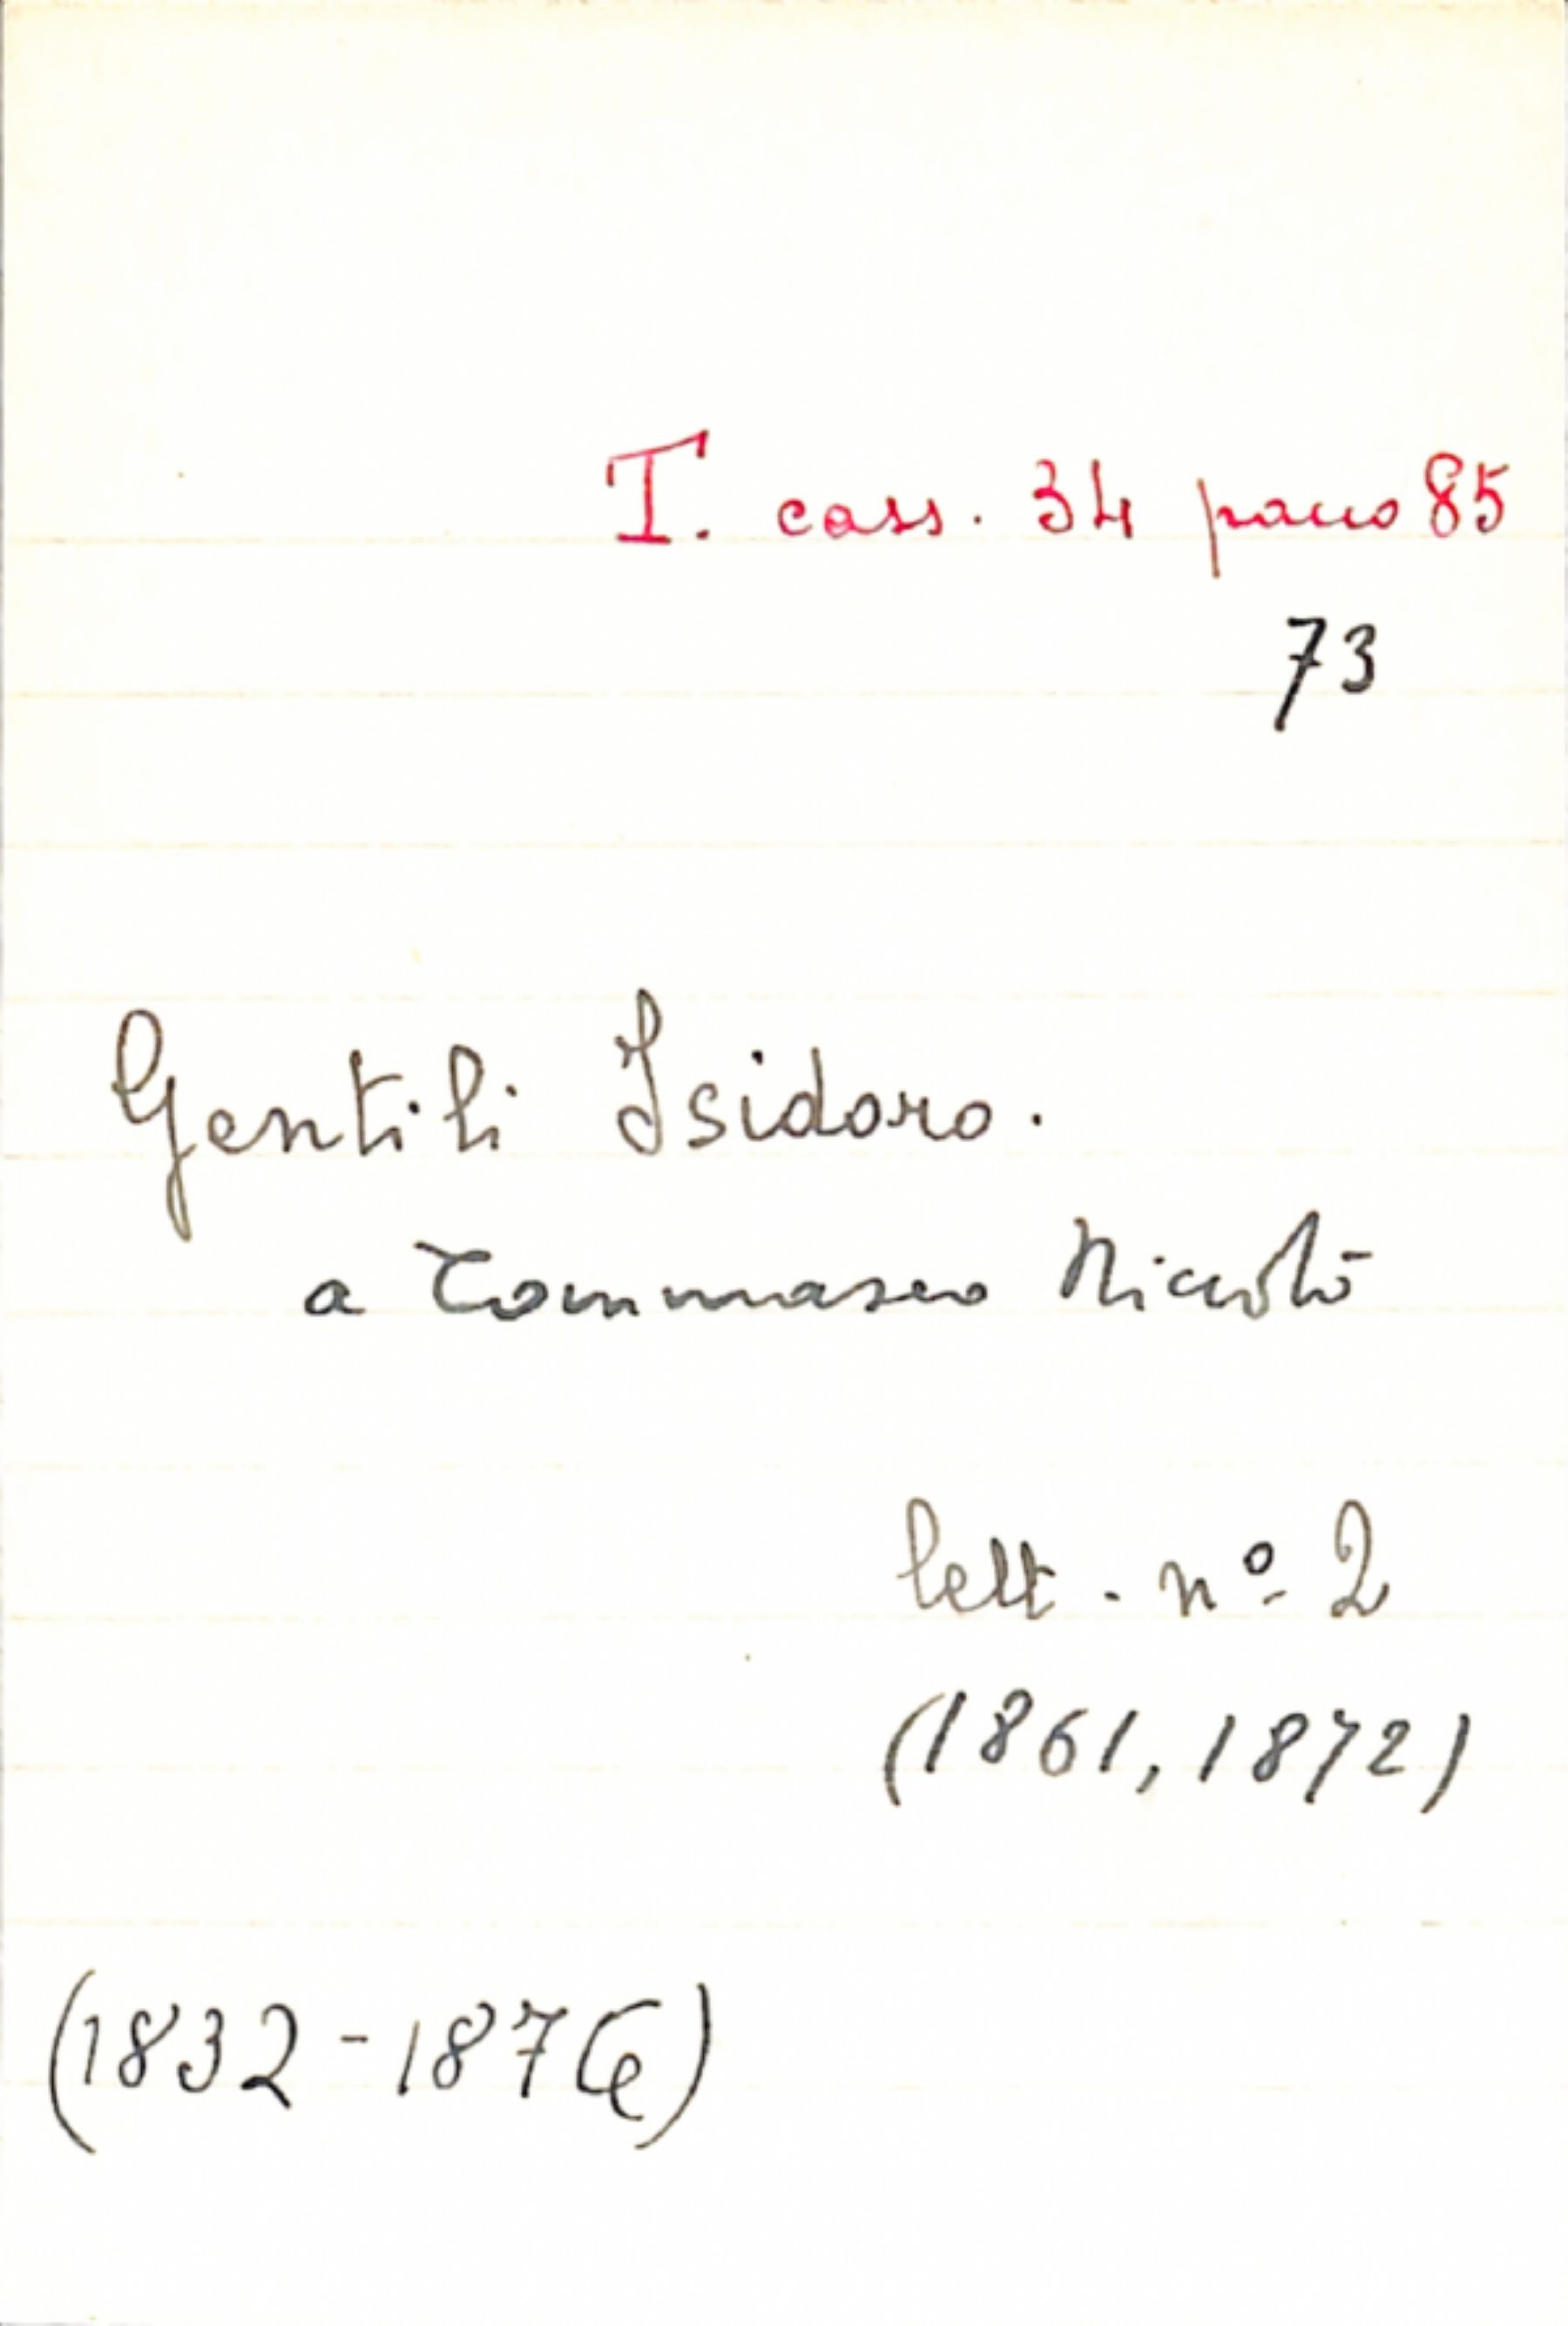 T. cass. 34 pacco 85
73
Gentili Isidoro.
a Tommaseo Niccolò
lett. nº 2
(1861, 1872)
(1832-1876)